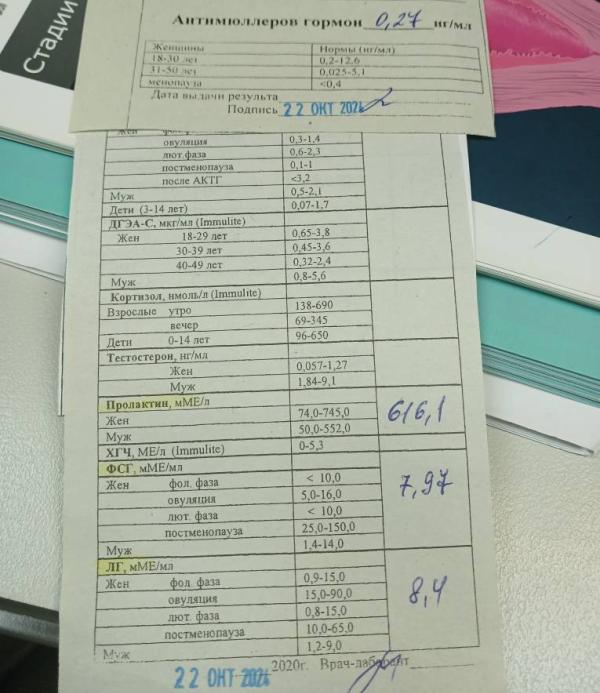 Стадии
Антимюллеров гормон 0,27 нг/мл
Женщины Нормы (нг/мл)
18-30 лет 0,2-12,6
31-50 лет 0,025-5,1
менопауза <0,4
Дата выдачи результа
Подпись 22 ОКТ
овуляция 0,3-1,4
лют.фаза 0,6-2,3
постменопауза 0,1-1
после АКТГ <3,2
Муж 0,5-2,1
Дети (3-14 лет) 0,07-1,7
ДГЭА-С, мкг/мл (Immulite)
Жен 18-29 лет 0,65-3,8
30-39 лет 0,45-3,6
40-49 лет 0,32-2,4
Муж 0,8-5,6
Кортизол, нмоль/л (Immulite)
Взрослые утро 138-690
вечер 69-345
Дети 0-14 лет 96-650
Тестостерон, нг/мл
Жен 0,057-1,27
Муж 1,84-9,1
Пролактин, мМЕ/л 616,1
Жен 74,0-745,0
Муж 50,0-552,0
ХГЧ, МЕ/л (Immulite) 0-5,3
ФСГ, мМЕ/мл 7,97
Жен фол. фаза < 10,0
овуляция 5,0-16,0
лют. фаза < 10,0
постменопауза 25,0-150,0
Муж 1,4-14,0
ЛГ, мМЕ/мл 8,4
Жен фол. фаза 0,9-15,0
овуляция 15,0-90,0
лют. фаза 0,8-15,0
постменопауза 10,0-65,0
Муж 1,2-9,0
22 ОКТ 2020г. Врач-лаборант